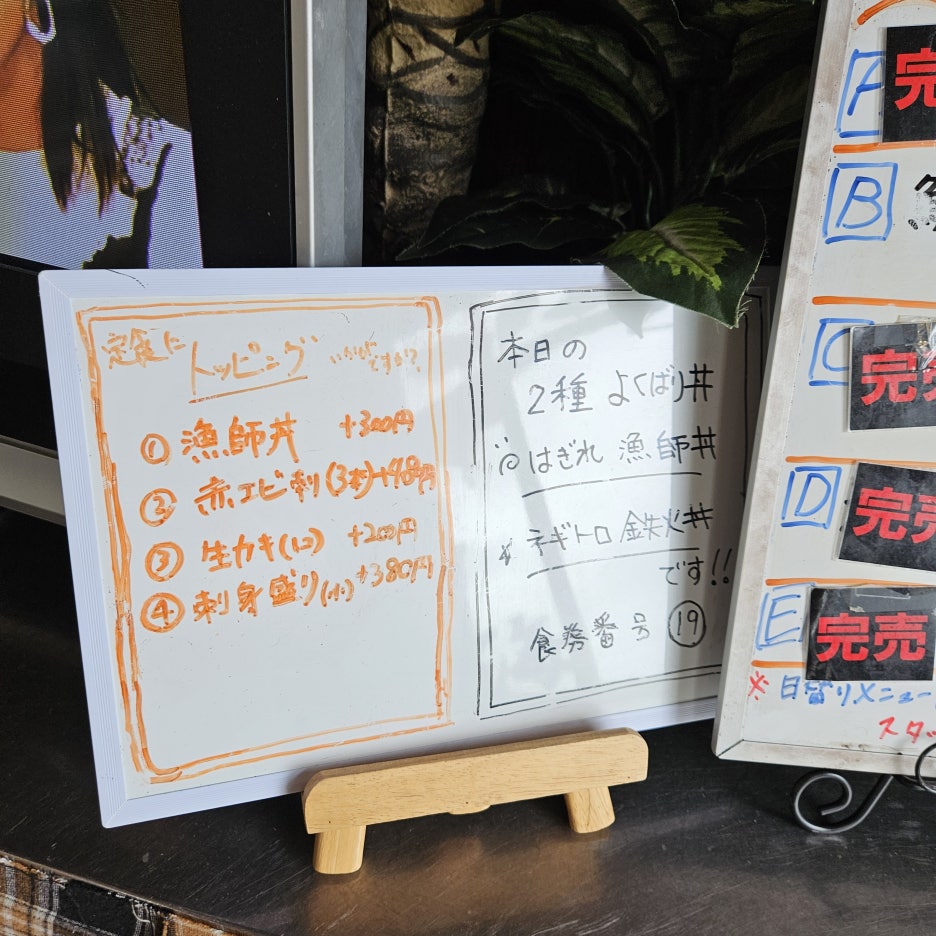 定食に
トッピング
いかが
ですか?
① 漁師丼 +300円
② 赤エビ刺(3本)+480円
③ 生カキ(1コ) +200円
④ 刺身盛り(小)+380円
本日の
2種 よくばり丼
はぎれ 漁師丼
ネギトロ 鉄火丼
です!!
食券番号 ⑲
A 完
B
C 完売
D 完売
E 完売
※日替りメニュー
スタッ